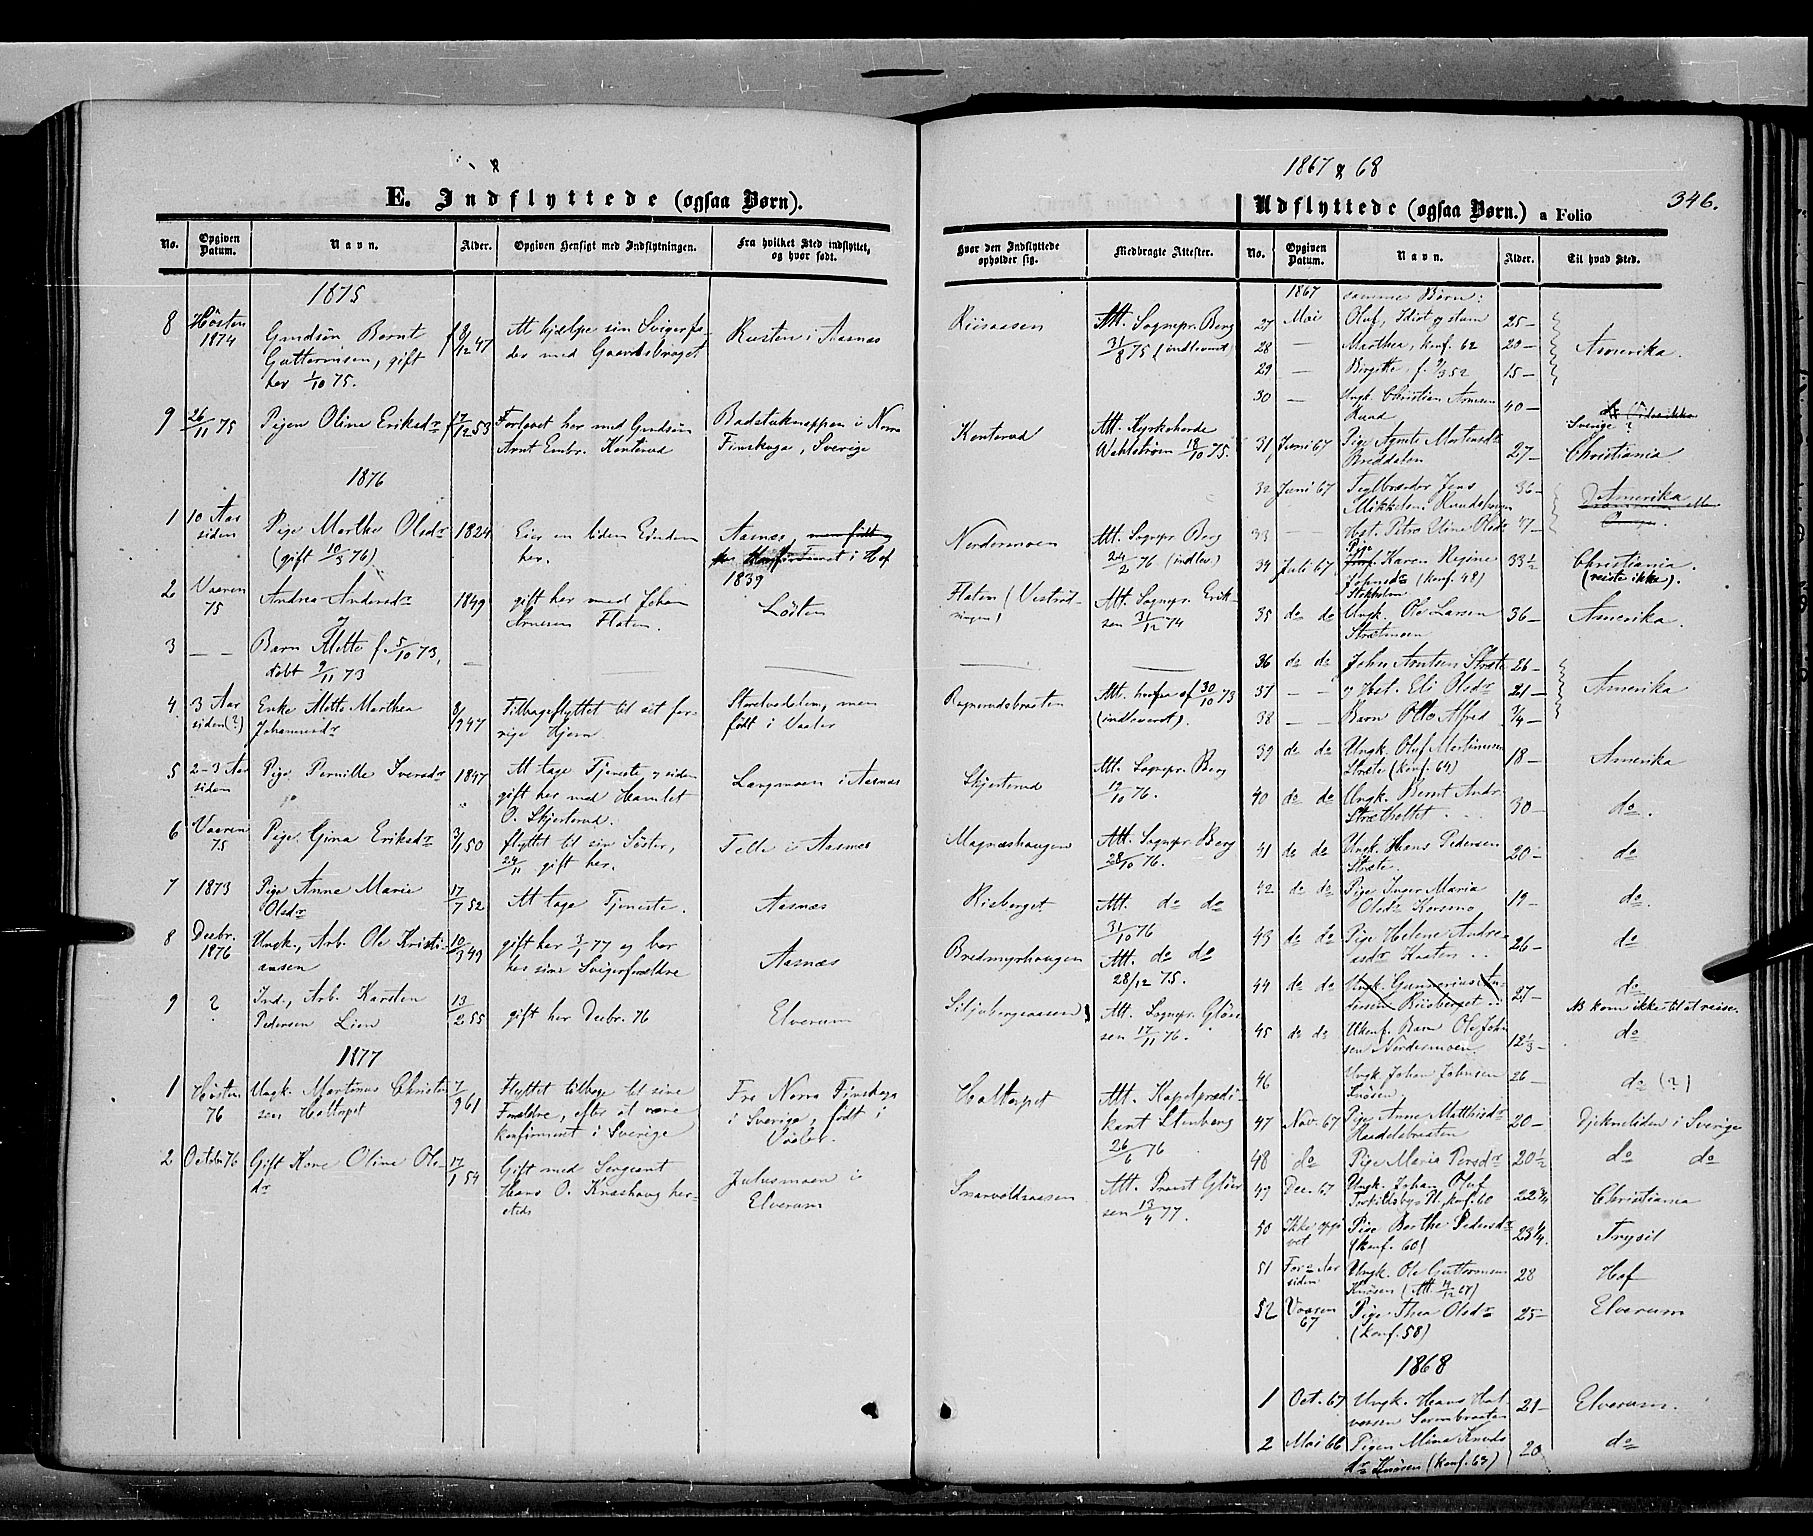 E. Indflyttede (ogsaa Børn).
No. Opgiven Datum. Navn. Alder. Opgiven Hensigt med Indflytningen. Fra hvilket Sted indflyttet, og hvor født.
1875
8 Høsten 1874 Gmdsøn Bernt Guttormsen, gift her 1/10 75. f 8/12 47 At hjælpe sin Svigerfader med Gaardsbruget Rusten i Aasnæs
9 26/11 75 Pigen Oline Eriksdr f 17/12 53 Forlovet her med Gmdsøn Arnt Embr. Kenterud Badstuknappen i Norra Finskoga, Sverige
1876
1 10 Aar siden Pige Marthe Olsdr (gift 10/3 76) 1824 Eier en liden Eiendom her. Aasnæs men født her Konfirmeret i Hof 1839
2 Vaaren 75 Andrea Andersdr 1849 gift her med Johan Arnesen Flaten. Løiten
3 — — Barn Mette f. 5/10 73, døbt 9/11 73 —
4 3 Aar siden (?) Enke Mette Marthea Johannesdr 8/9 47 Tilbageflyttet til sit forrige Hjem. Storelvdalen, men født i Vaaler
5 2-3 Aar siden Pige Pernille Iversdr 1847 At tage Tjeneste, siden gift her med Hamlet O. Skjesterud. Langmoen i Aasnæs
6 Vaaren 75 Pige Gina Eriksdr 3/1 50 flyttet til sin Søster, 24/11 gift her. Telle i Aasnæs
7 1873 Pige Anne Marie Olsdr 17/7 52 At tage Tjeneste. Aasnæs
8 Decbr. 1876 Ungk. Arb. Ole Kristiansen 10/3 49 gift her 3/1 77 og bor hos sine Svigerforældre Aasnæs
9 ? Ind., Arb. Karsten Pedersen Lien 13/2 55 gift her Decbr. 76 Elverum
1877
1 Høsten 76 Ungk. Martinus Christensen Haltorpet 7/9 61 Flyttet tilbage til sine Forældre, efter at være konfirmeret i Sverige Fra Norra Finskoga i Sverige, født i Vaaler.
2 October 76 Gift Kone Oline Olsdr 17/1 54 Gift med Sergeant Hans O. Knashaug hersteds Julusmoen i Elverum
1867 & 68
346.
Udflyttede (ogsaa Børn.) a Folio
Hvor den Indflyttede opholder sig. Medbragte Attester. No. Opgiven Datum. Navn. Alder. Til hvad Sted.
Riisaasen Att. Sognepr. Berg 31/8 75 (indleveret)
Kenterud Att. Kyrkoherde Wahlstrøm 18/10 75.
Nordermoen Att. Sognepr. Berg 24/2 76 (indlev.)
Flaten Att. Sognepr. Eriksen 31/12 74
Att. herfra af 30/10 73 (indleveret).
Skjesterud Att. Sognepr. Berg 12/10 76.
Magneshaugen Att. Sognepr. Berg 28/10 76.
Risberget Att. do do 31/10 76
Bredmyrhaugen Att. do do 28/12 75.
Siljubergsaasen Att. Sognepr. Gløersen 17/11 76.
Haltorpet Att. Kapelprædikant Stenberg 26/6 76
Snarvoldsaasen Att. Provst Gløersen 13/4 77.
1867 samme Børn:
27 Mai Oluf, Idiot og stum 25—
28 — Marthea, konf. 62 20— Amerika.
29 — Birgitte, f. 9/3 52 15—
30 — Ungk. Christian Arnesen Rund 40— Sverige ?
31 Juni 67 Pige Agnete Mortensdr Breddalen 27— Christiania
32 Juni 67 Teglbrænder Jens Mikkelsen 36— Amerika
33 — — Hst. Petra Oline Olsdr 47—
34 Juli 67 Pige Karen Regine Johnsdr (konf. 48) Stokholm 33½ Christiania. (reiste ikke).
35 do do Ungk. Ole Larsen Strætmoen 36— Amerika.
36 do do John Arntsen Stræte 26—
37 — — og Hst. Eli Olsdr 21— Amerika
38 — — Barn Otto Alfred ¾—
39 do do Ungk. Oluf Martinusen Stræte (konf. 64) 18— Amerika
40 do do Ungk. Bernt Andr. Stræthollet 30— do.
41 do do Ungk. Hans Pedersen Stræte. 20— do
42 do do Pige Inger Maria Olsdr Korsmo 19— do.
43 do do Pige Helene Andreasdr Kaaten 26— do
44 do do Ungk. Gunnerius Andersen Riisberget 27— do NB kom ikke til at reise.
45 do do Ukonf. Barn Ole Johnsen Nordermoen 12⅓— do
46 Ungk. Johan Johnsen Knøsen. 26— do (?)
47 Nov. 67 Pige Anne Matthisdr 20— Djekneliden i Sverige
48 do Pige Maria Persdr 20½ do do
49 Dec. 67 Ungk. Johan Oluf konf. 60 22¾ Christiania
50 Ikke opgivet Pige Berthe Pedersdr (konf. 60) 23¼. Trysil
51 For 2 Aar siden Ungk. Ole Guttormsen Knøsen 28 Hof
52 Vaaren 67 Pige Thea Olsdr (konf. 58) 25— Elverum
1868
1 Oct. 67 Ungk. Hans Halvorsen Sormbraaten 21— Elverum.
2 Mai 66 Pigen Mina Knudsdr Knøsen (konf. 63) 20 do